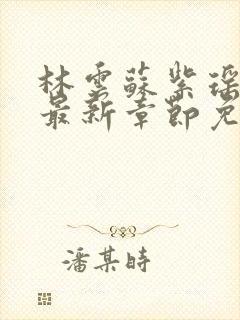 林雲蘇紫瑶
最新章節免
潘某時